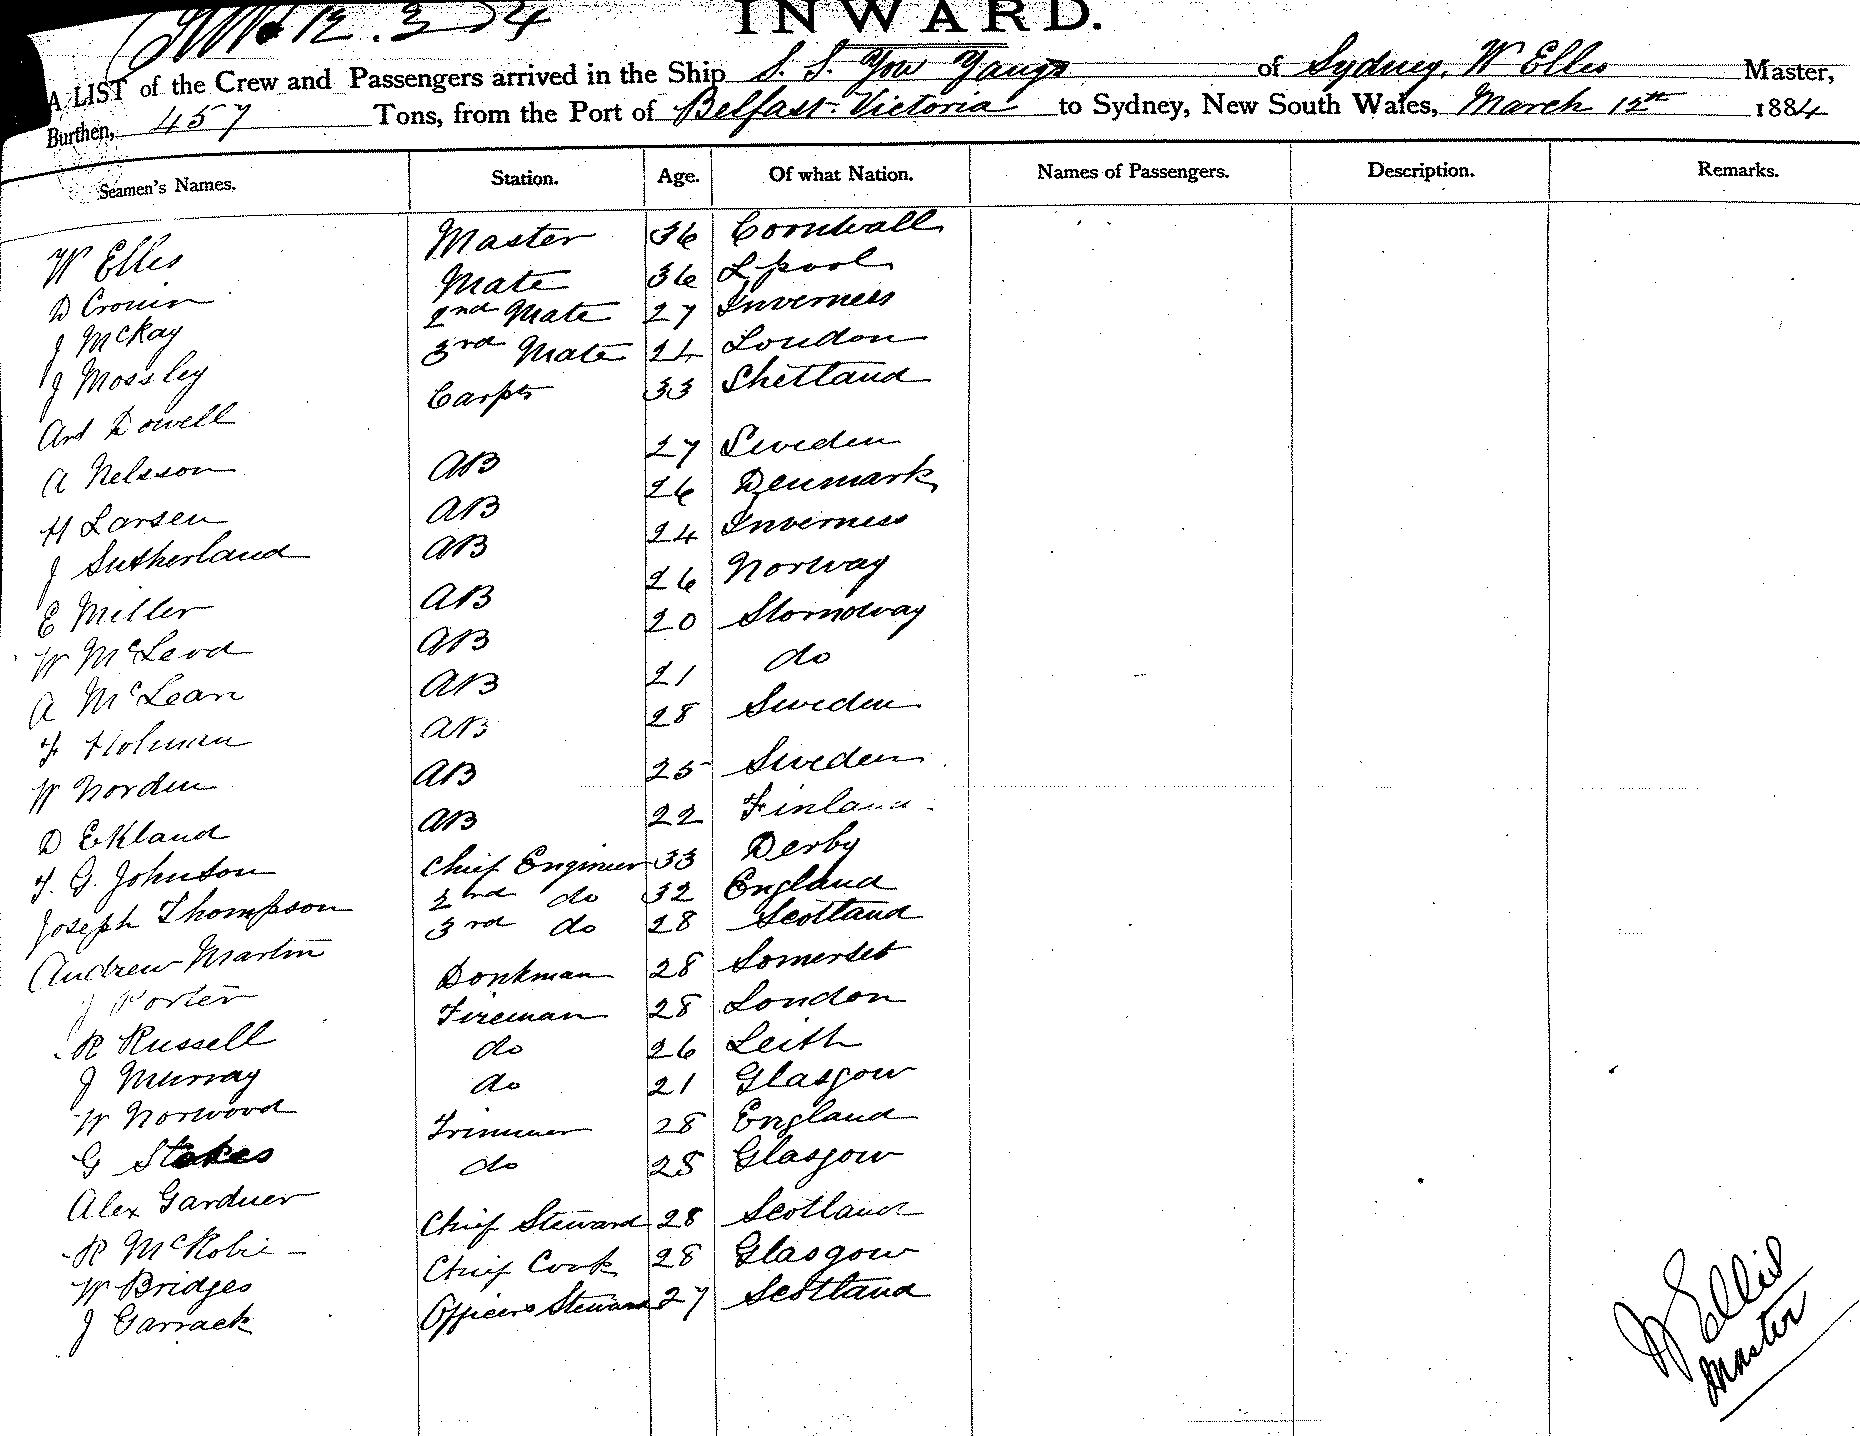 INWARD.
A LIST of the Crew and Passengers arrived in the Ship S. S. You Yangs of Sydney, W Ellis Master,
Burthen, 457 Tons, from the Port of Belfast Victoria to Sydney, New South Wales, March 12th 1884
Seamen's Names. Station. Age. Of what Nation. Names of Passengers. Description. Remarks.
W Ellis Master 36 Cornwall
D Cronin Mate 36 L.pool
J McKay 2nd Mate 27 Inverness
J Mossley 3rd Mate 24 London
Art Dowell Carptr 33 Shetland
A Nelsson AB 27 Sweden
H Larsen AB 26 Denmark
J Sutherland AB 24 Inverness
E Miller AB 26 Norway
W McLeod AB 20 Stornoway
A McLean AB 21 do
F Holman AB 28 Sweden
W Norden AB 25 Sweden
D Ekland AB 22 Finland
T. G. Johnston Chief Engineer 33 Derby
Joseph Thompson 2nd do 32 England
Andrew Martin 3rd do 28 Scotland
J Porter Donkman 28 Somerset
R Russell Fireman 28 London
J Murray do 26 Leith
W Norwood do 21 Glasgow
G Stokes Trimmer 28 England
Alex Gardner do 28 Glasgow
R McRobie Chief Steward 28 Scotland
W Bridges Chief Cook 28 Glasgow
J Garrack Officers Steward 27 Scotland
W Ellis
Master